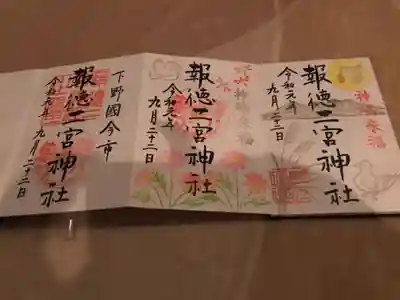 神
来福
報徳二宮神社
令和元年
九月二十二日
神
来福
報徳二宮神社
令和元年
九月二十二日
下野國今市
報徳二宮神社
令和元年九月二十二日